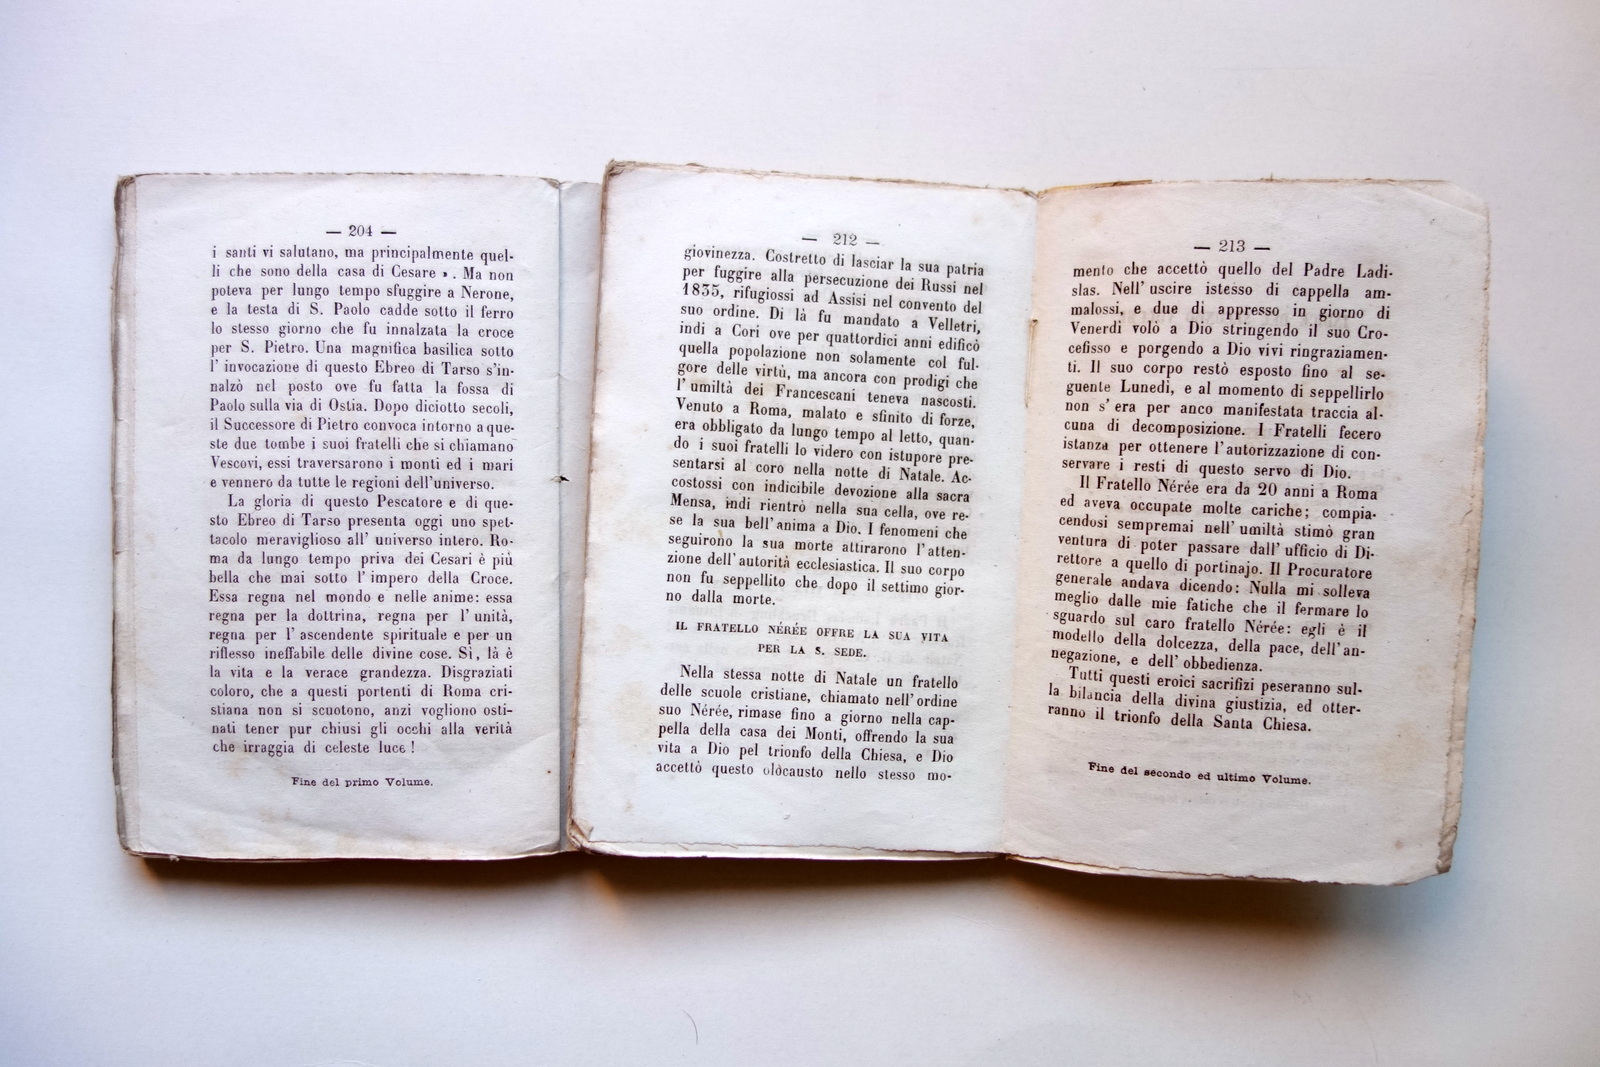 — 204 —
i santi vi salutano, ma principalmente quel-
li che sono della casa di Cesare ». Ma non
poteva per lungo tempo sfuggire a Nerone,
e la testa di S. Paolo cadde sotto il ferro
lo stesso giorno che fu innalzata la croce
per S. Pietro. Una magnifica basilica sotto
l' invocazione di questo Ebreo di Tarso s'in-
nalzò nel posto ove fu fatta la fossa di
Paolo sulla via di Ostia. Dopo diciotto secoli,
il Successore di Pietro convoca intorno a que-
ste due tombe i suoi fratelli che si chiamano
Vescovi, essi traversarono i monti ed i mari
e vennero da tutte le regioni dell'universo.
La gloria di questo Pescatore e di que-
sto Ebreo di Tarso presenta oggi uno spet-
tacolo meraviglioso all' universo intero. Ro-
ma da lungo tempo priva dei Cesari è più
bella che mai sotto l' impero della Croce.
Essa regna nel mondo e nelle anime: essa
regna per la dottrina, regna per l' unità,
regna per l' ascendente spirituale e per un
riflesso ineffabile delle divine cose. Sì, là è
la vita e la verace grandezza. Disgraziati
coloro, che a questi portenti di Roma cri-
stiana non si scuotono, anzi vogliono osti-
nati tener pur chiusi gli occhi alla verità
che irraggia di celeste luce !
Fine del primo Volume.
— 212 —
giovinezza. Costretto di lasciar la sua patria
per fuggire alla persecuzione dei Russi nel
1835, rifugiossi ad Assisi nel convento del
suo ordine. Di là fu mandato a Velletri,
indi a Cori ove per quattordici anni edificò
quella popolazione non solamente col ful-
gore delle virtù, ma ancora con prodigi che
l' umiltà dei Francescani teneva nascosti.
Venuto a Roma, malato e sfinito di forze,
era obbligato da lungo tempo al letto, quan-
do i suoi fratelli lo videro con istupore pre-
sentarsi al coro nella notte di Natale. Ac-
costossi con indicibile devozione alla sacra
Mensa, indi rientrò nella sua cella, ove re-
se la sua bell' anima a Dio. I fenomeni che
seguirono la sua morte attirarono l' atten-
zione dell' autorità ecclesiastica. Il suo corpo
non fu seppellito che dopo il settimo gior-
no dalla morte.
IL FRATELLO NÉRÉE OFFRE LA SUA VITA
PER LA S. SEDE.
Nella stessa notte di Natale un fratello
delle scuole cristiane, chiamato nell' ordine
suo Nérée, rimase fino a giorno nella cap-
pella della casa dei Monti, offrendo la sua
vita a Dio pel trionfo della Chiesa, e Dio
accettò questo olocausto nello stesso mo-
— 213 —
mento che accettò quello del Padre Ladi-
slas. Nell' uscire istesso di cappella am-
malossi, e due di appresso in giorno di
Venerdì volò a Dio stringendo il suo Cro-
cefisso e porgendo a Dio vivi ringraziamen-
ti. Il suo corpo restò esposto fino al se-
guente Lunedì, e al momento di seppellirlo
non s' era per anco manifestata traccia al-
cuna di decomposizione. I Fratelli fecero
istanza per ottenere l'autorizzazione di con-
servare i resti di questo servo di Dio.
Il Fratello Nérée era da 20 anni a Roma
ed aveva occupate molte cariche; compia-
cendosi sempremai nell' umiltà stimò gran
ventura di poter passare dall' ufficio di Di-
rettore a quello di portinajo. Il Procuratore
generale andava dicendo: Nulla mi solleva
meglio dalle mie fatiche che il fermare lo
sguardo sul caro fratello Nérée: egli è il
modello della dolcezza, della pace, dell'an-
negazione, e dell' obbedienza.
Tutti questi eroici sacrifizi peseranno sul-
la bilancia della divina giustizia, ed otter-
ranno il trionfo della Santa Chiesa.
Fine del secondo ed ultimo Volume.